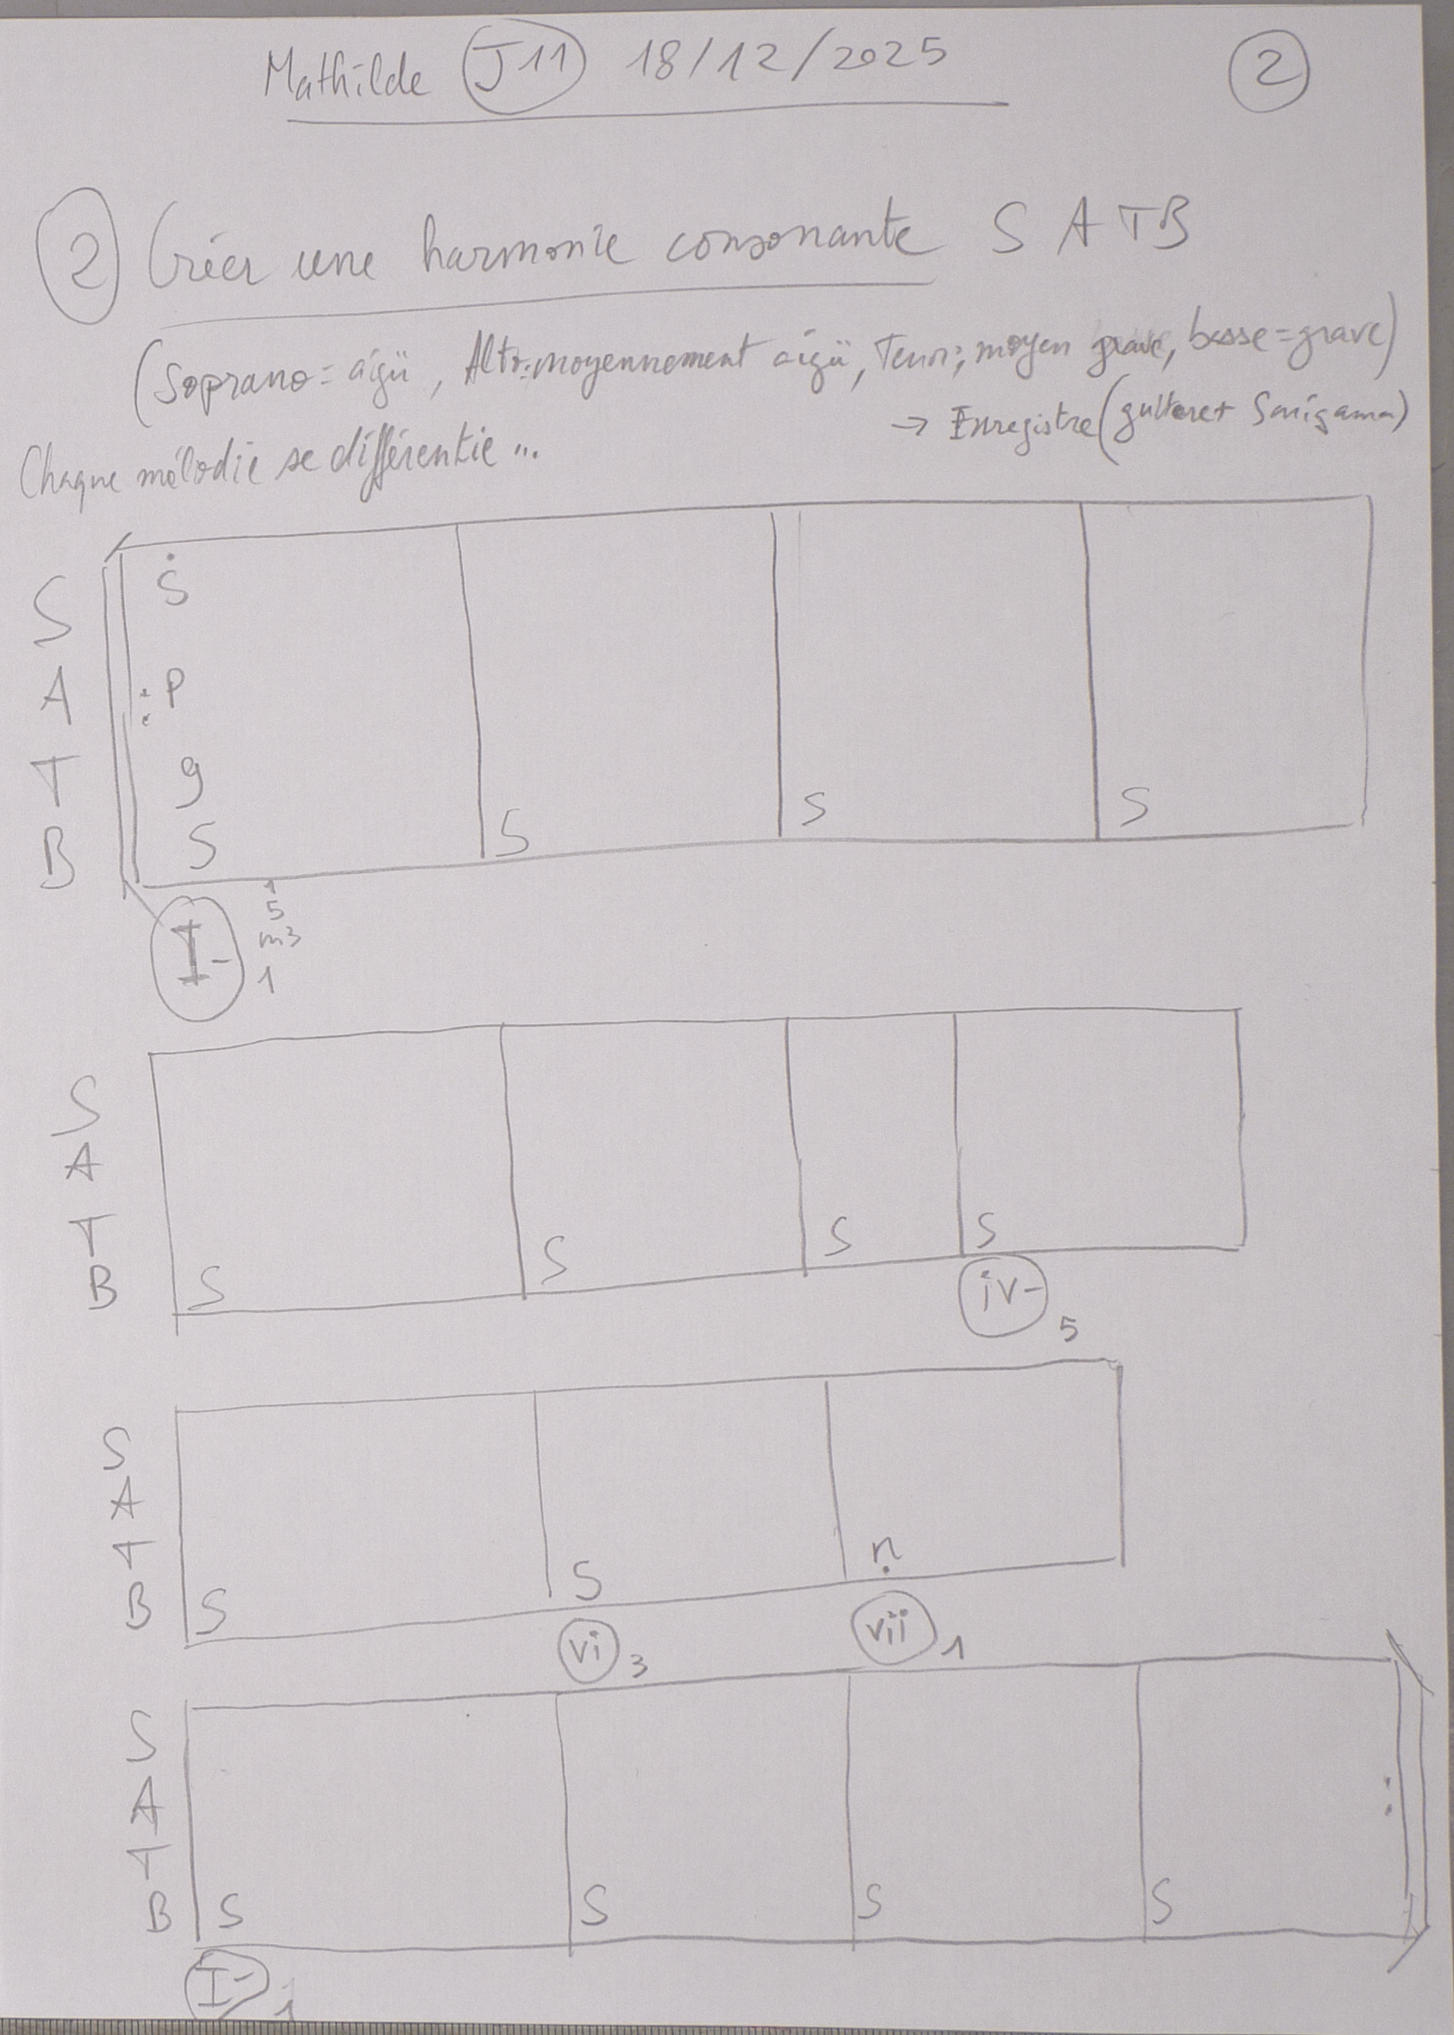 Mathilde J11 18/12/2025 2
2 Créer une harmonie consonante S A T B
(Soprano = aigü, Alto: moyennement aigü, Tenor; moyen grave, basse = grave)
→ Enregistre (
Chaque mélodie se différentie ...
S Ṡ
A : P
T g
B S S S S
I- 1
5
m3
1
S
A
T
B S S S S
iv- 5
S
A
T
B S S ṇ
vi 3 vii 1
S
A :
T
B S S S S
I- 1